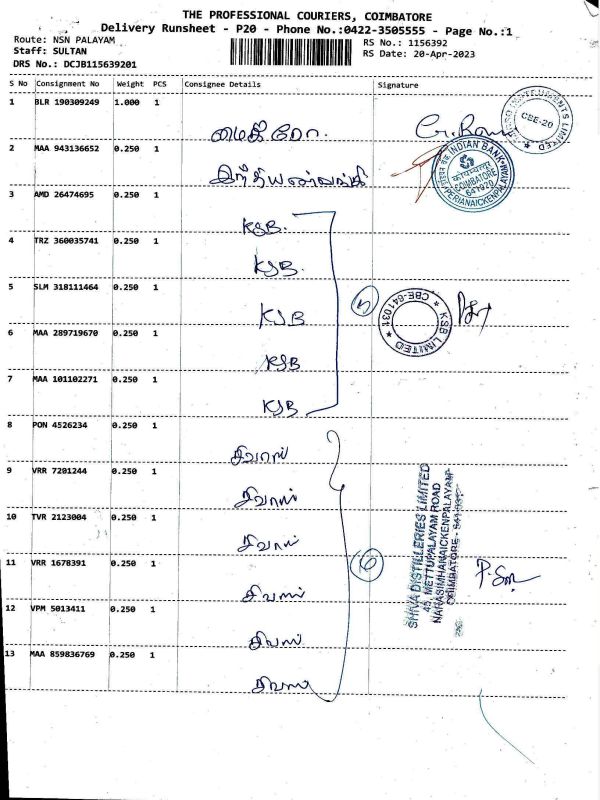 THE PROFESSIONAL COURIERS, COIMBATORE
Delivery Runsheet - P20 - Phone No.:0422-3505555 - Page No.:1
Route: NSN PALAYAM
RS No.: 1156392
Staff: SULTAN
RS Date: 20-Apr-2023
DRS No.: DCJB115639201
S No Consignment No Weight PCS Consignee Details Signature
1 BLR 190309249 1.000 1
CBE-20
2 MAA 943136652 0.250 1
INDIAN BANK
कोयम्बत्तूर
COIMBATORE
641020
PERIANAICKENPALAYAM
3 AMD 26474695 0.250 1 KSB.
4 TRZ 360035741 0.250 1 KSB
5 SLM 318111464 0.250 1 KSB
5
KSB LIMITED
CBE-641031
6 MAA 289719670 0.250 1 KSB
7 MAA 101102271 0.250 1 KSB
8 PON 4526234 0.250 1 சிவாஸ்
9 VRR 7201244 0.250 1 சிவாஸ்
10 TVR 2123004 0.250 1 சிவாஸ்
11 VRR 1678391 0.250 1 சிவாஸ்
6
SHIVA DISTILLERIES LIMITED
45, METTUPALAYAM ROAD
NARASIMHANAICKENPALAYAM
COIMBATORE - 641 031.
12 VPM 5013411 0.250 1 சிவாஸ்
13 MAA 859836769 0.250 1 சிவாஸ்